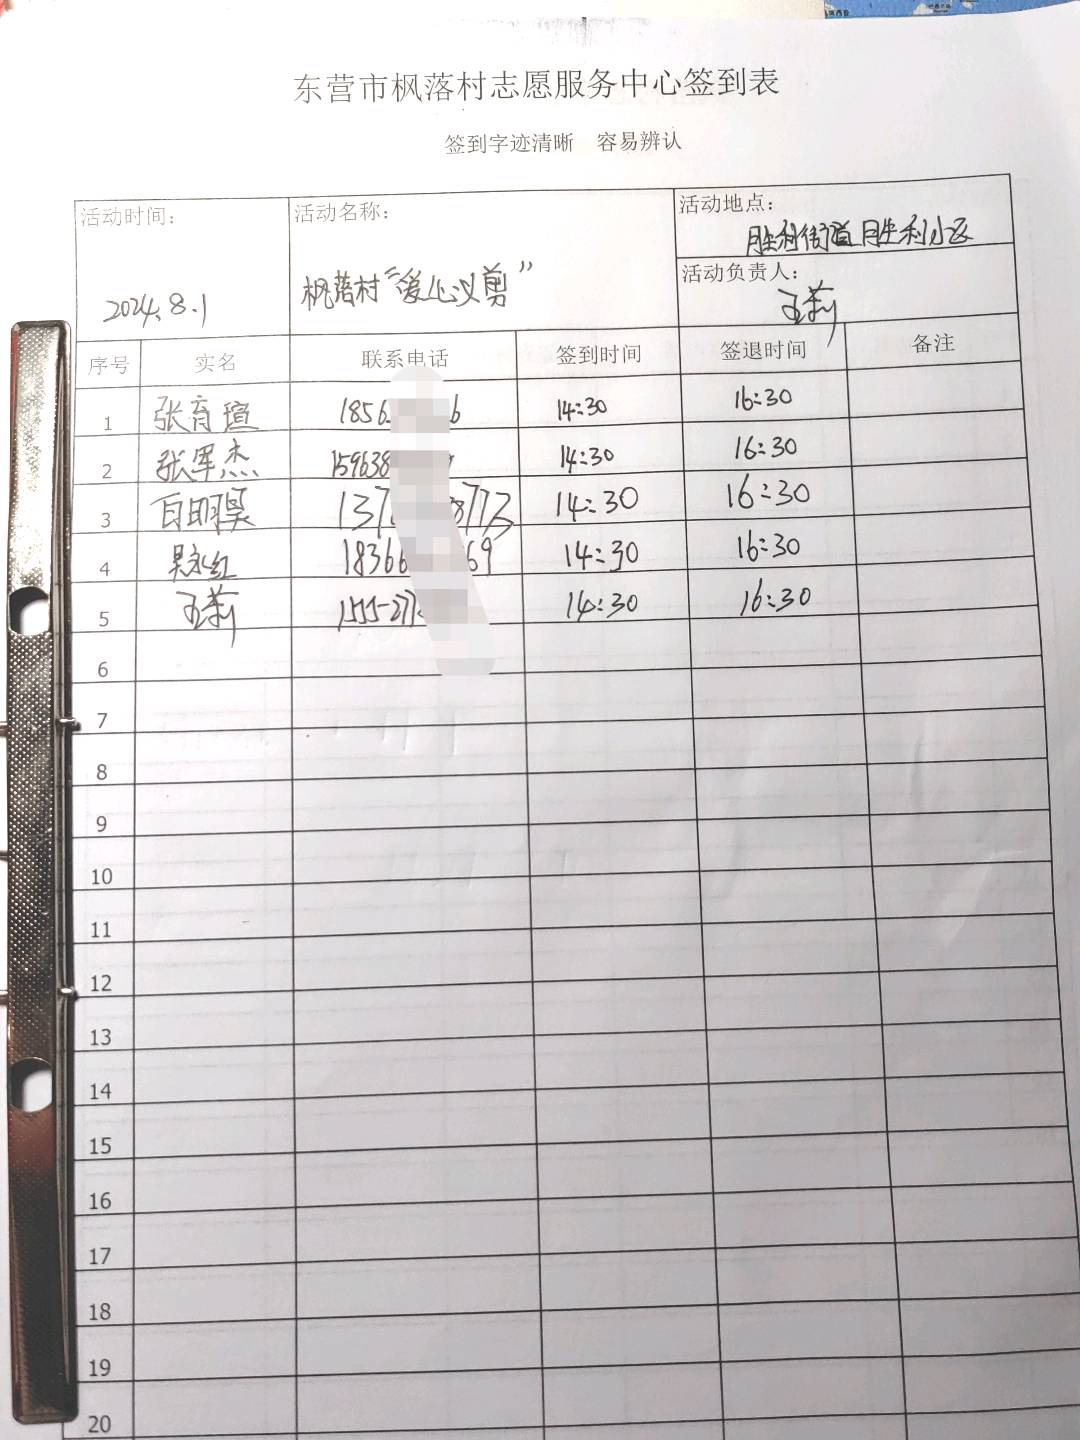 东营市枫落村志愿服务中心签到表
签到字迹清晰 容易辨认
活动时间：
2024.8.1
活动名称：
枫落村“爱心义剪”
活动地点：
胜利街道胜利小区
活动负责人：
王莉
序号 实名 联系电话 签到时间 签退时间 备注
1 张育瑄 185 6 14:30 16:30
2 张军杰 159638 14:30 16:30
3 白明昊 137 8773 14:30 16:30
4 吴永红 18366 69 14:30 16:30
5 王莉 155-27 14:30 16:30
6
7
8
9
10
11
12
13
14
15
16
17
18
19
20